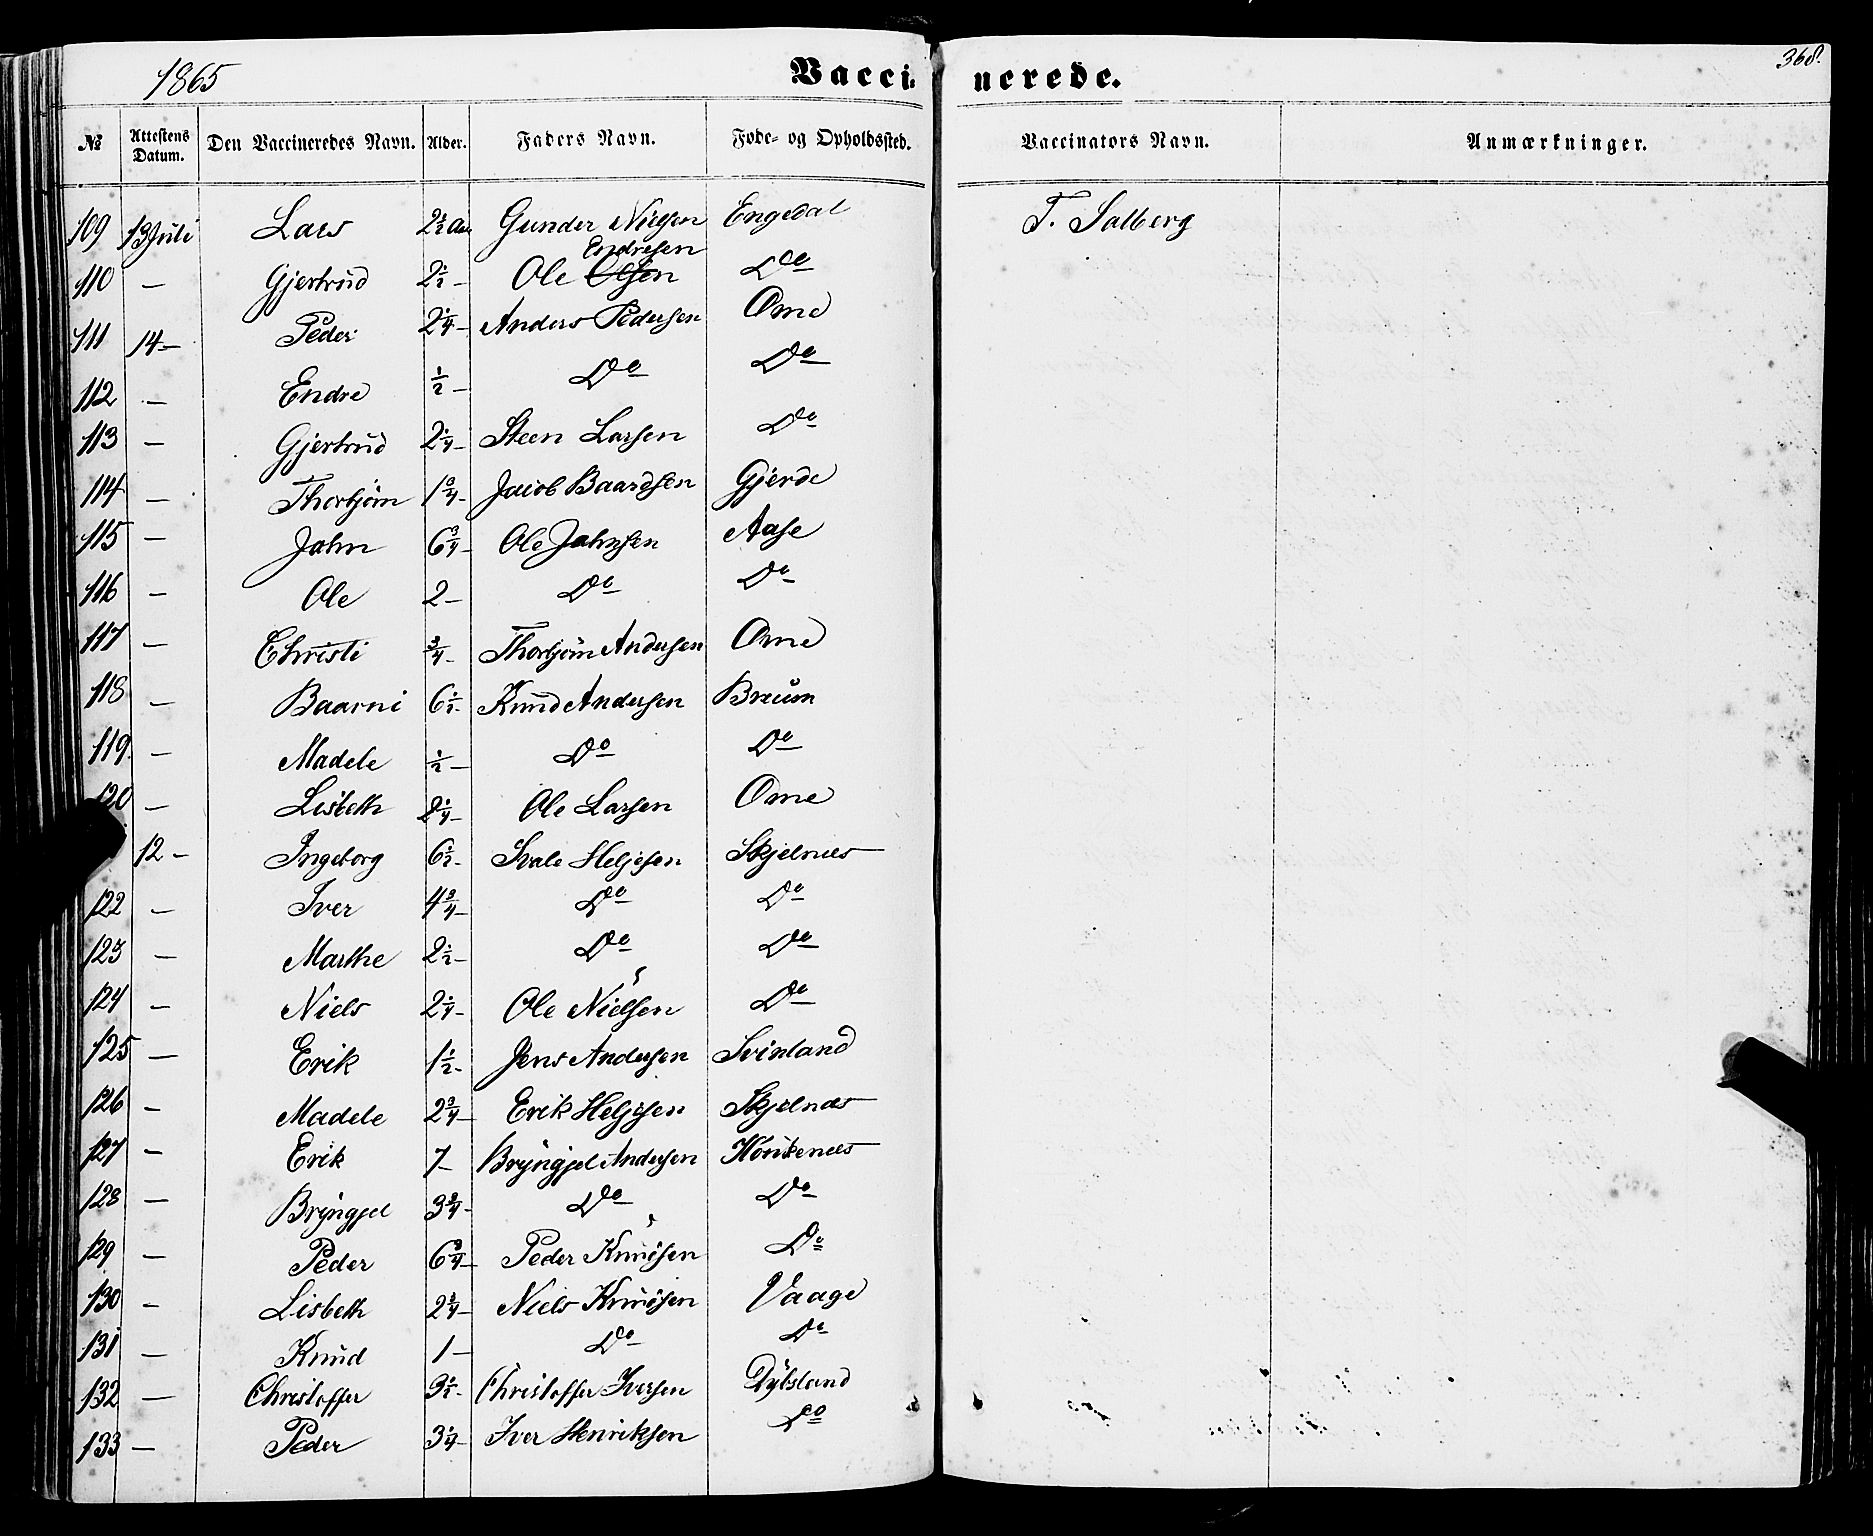 1865 Vacci- nerede. 368.
№ Attestens Datum. Den Vaccineredes Navn. Alder. Faders Navn. Føde- og Opholdssted. Vaccinators Navn. Anmærkninger.
109 13 Juli Lars 2½ Gunder Nielsen Engedal T. Salberg
Endresen
110 — Gjertrud 2½ — Ole Olsen Do
111 14 — Peder 2¼ — Anders Pedersen Ome
112 — Endre ½ — Do Do
113 — Gjertrud 2¼ — Steen Larsen Do
114 — Thorbjørn 1¾ — Jacob Baardsen Gjerde
115 — John 6¾ — Ole Johnsen Aase
116 — Ole 2 — Do Do
117 — Christi ¾ — Thorbjørn Andersen Ome
118 — Baarni 6½ — Knud Andersen
119. — Madele ½ — Do Do
120 — Lisbeth 2¼ — Ole Larsen Ome
12 — Ingeborg 6½ — Svale Heljesen Skjelnæs
122 — Iver 4¾ — Do Do
123 — Marthe 2½ — Do Do
124 — Niels 2¼ — Ole Nielsen Do
125 — Erik 1½ — Jens Andersen Svinland
126 — Madele 2¾ — Erik Heljesen Skjelnæs
127 — Erik 7 — Bryngjel Andersen
128 — Bryngjel 3¾ — Do Do
129 — Peder 6¾ — Peder Knudsen Do
130 — Lisbeth 2¾ — Niels Knudsen Vaage
131 — Knud 1 — Do Do
132 — Christoffer 3½ — Christoffer Iversen
133 — Peder 3¼ — Iver Henriksen Do